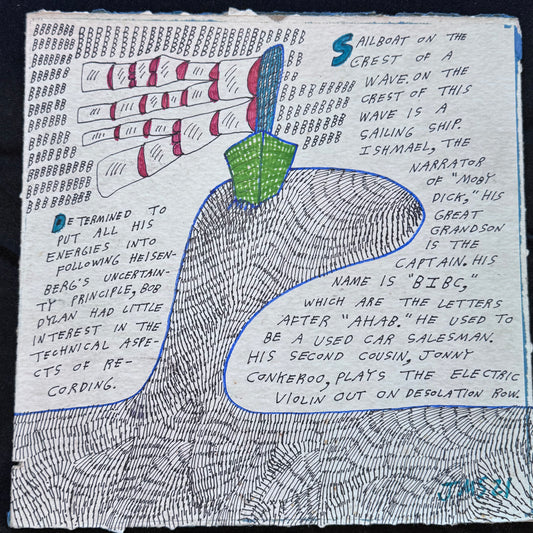 SAILBOAT ON THE
CREST OF A
WAVE. ON THE
CREST OF THIS
WAVE IS A
SAILING SHIP.
ISHMAEL, THE
NARRATOR
OF "MOBY
DICK," HIS
GREAT
GRANDSON
IS THE
CAPTAIN. HIS
NAME IS "BIBC,"
WHICH ARE THE LETTERS
AFTER "AHAB." HE USED TO
BE A USED CAR SALESMAN.
HIS SECOND COUSIN, JONNY
CONKEROO, PLAYS THE ELECTRIC
VIOLIN OUT ON DESOLATION ROW.
DETERMINED TO
PUT ALL HIS
ENERGIES INTO
FOLLOWING HEISEN-
BERG'S UNCERTAIN-
TY PRINCIPLE, BOB
DYLAN HAD LITTLE
INTEREST IN THE
TECHNICAL ASPE-
CTS OF RE-
CORDING.
JMS 21